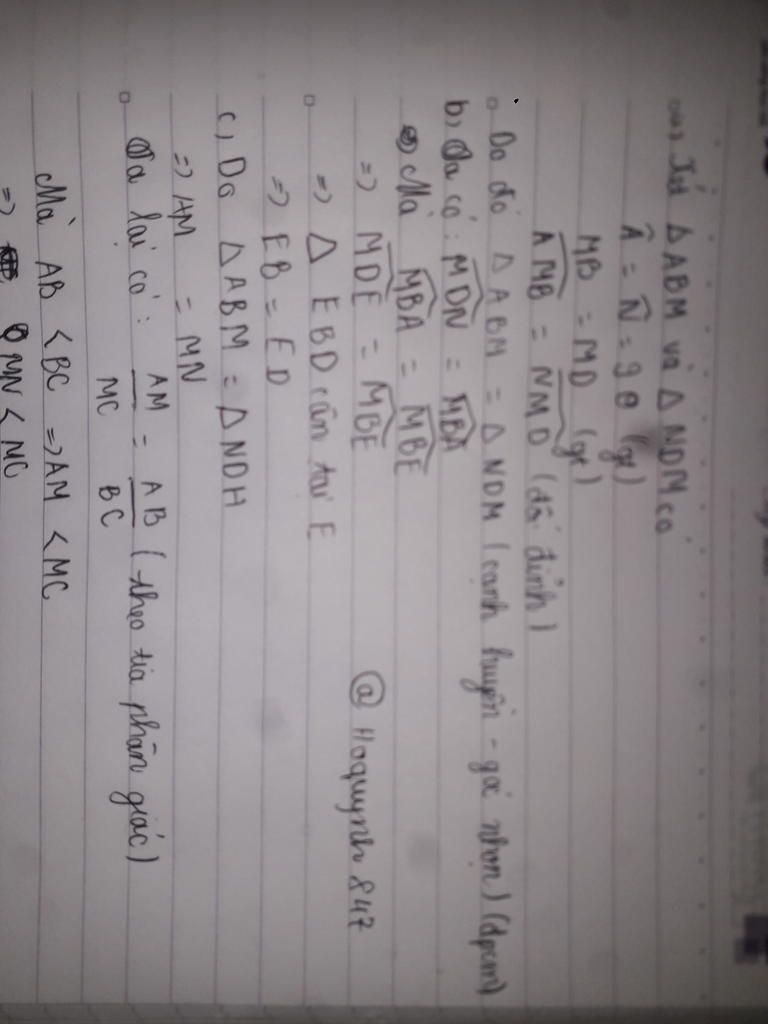 a, Xét △ ABM và △ NDM có
Â = N̂ = 90 (gt)
MB = MD (gt)
AMB = NMD (đối đỉnh)
Do đó △ ABM = △ NDM (cạnh huyền - góc nhọn) (đpcm)
b, Ta có : MDN = MBA
Mà MBA = MBE
=> MDE = MBE
@ Hoquynh 847
=> △ EBD cân tại E
=> EB = ED
c, Do △ ABM = △ NDH
=> AM = MN
Ta lại có : AM/MC = AB/BC (theo tia phân giác)
Mà AB < BC => AM < MC
=> MN < MC